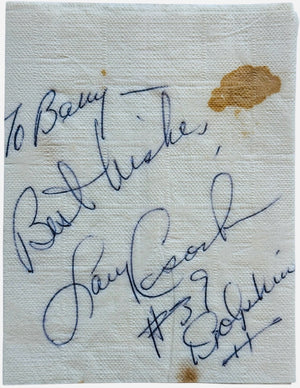 To Barry —
Best Wishes,
Larry Csonka
#39
Dolphins